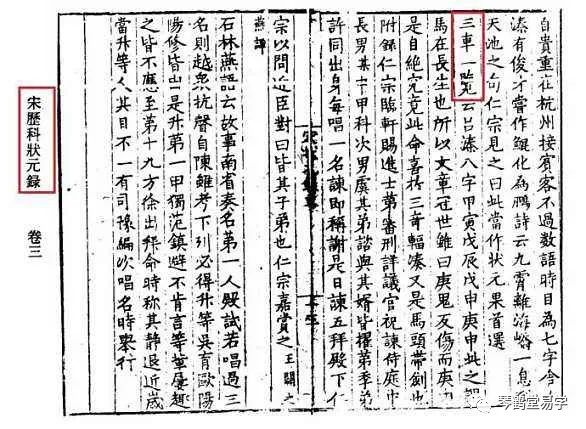 自貴重在杭州接賓客不過数語時目為七字舍人
溱有俊才嘗作鯤化為鵬詩云九霄離海嶠一息到
天池之句仁宗見之曰此當作狀元果首選
三車一覧云吕溱八字甲寅戊辰戊申庚申此之謂
馬在長生也所以文章冠世雖曰庚鬼反傷而庚申
是自絶究竟此命喜拱三竒輻湊又是馬頭帶劍也
附録仁宗臨軒賜進士第審刑詳議官祝諫侍庭中
長男某中甲科次男虞其弟諮與其婿皆擢第季弟
許同出身每唱一名諫即稱謝是日諫五拜殿下仁
宗以問近臣對曰皆其子弟也仁宗嘉賞之王闢之
燕譚
石林燕語云故事南省奏名第一人殿試若唱過三
名則越衆抗聲自陳雖考下列必得升等吳育歐陽
陽修皆由是升第一甲獨范鎮避不肯言等輩屢趣
之皆不應至第十九方徐出拜命時稱其静退近歲
當升等人其目不一有司豫編次唱名時舉行
宋歷科狀元録
卷三
琴鶴堂易学